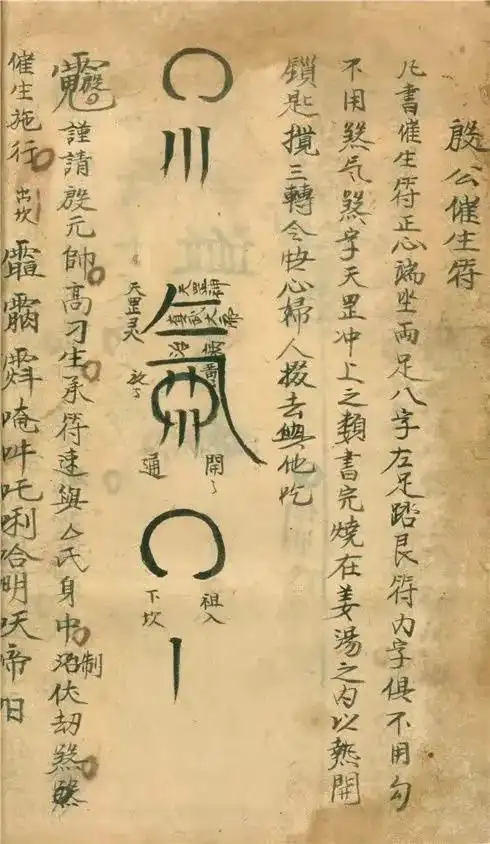 殷公催生符
凡書催生符正心端坐兩足八字左足踏艮符内字俱不用勾
不用煞气煞字天罡冲上之類書完燒在姜湯之内以熱開
鎖匙攪三轉令好心婦人掇去與他吃
天罡
真武大帝
治病
開
通
祖入
下坎
謹請殷元帥高刁生承符速與厶氏身中治制伏劫煞
催生施行
出坎
唵吽吒唎哈明
帝